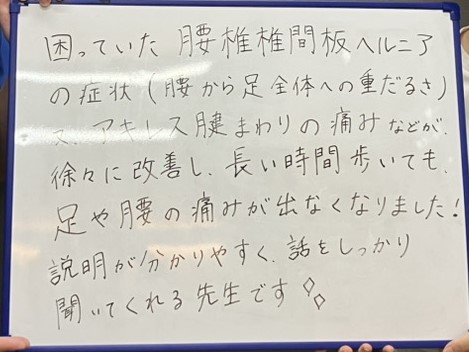 困っていた 腰椎椎間板ヘルニア
の症状（腰から足全体への重だるさ）
又、アキレス腱まわりの痛みなどが、
徐々に改善し、長い時間歩いても、
足や腰の痛みが出なくなりました！
説明が分かりやすく、話をしっかり
聞いてくれる先生です